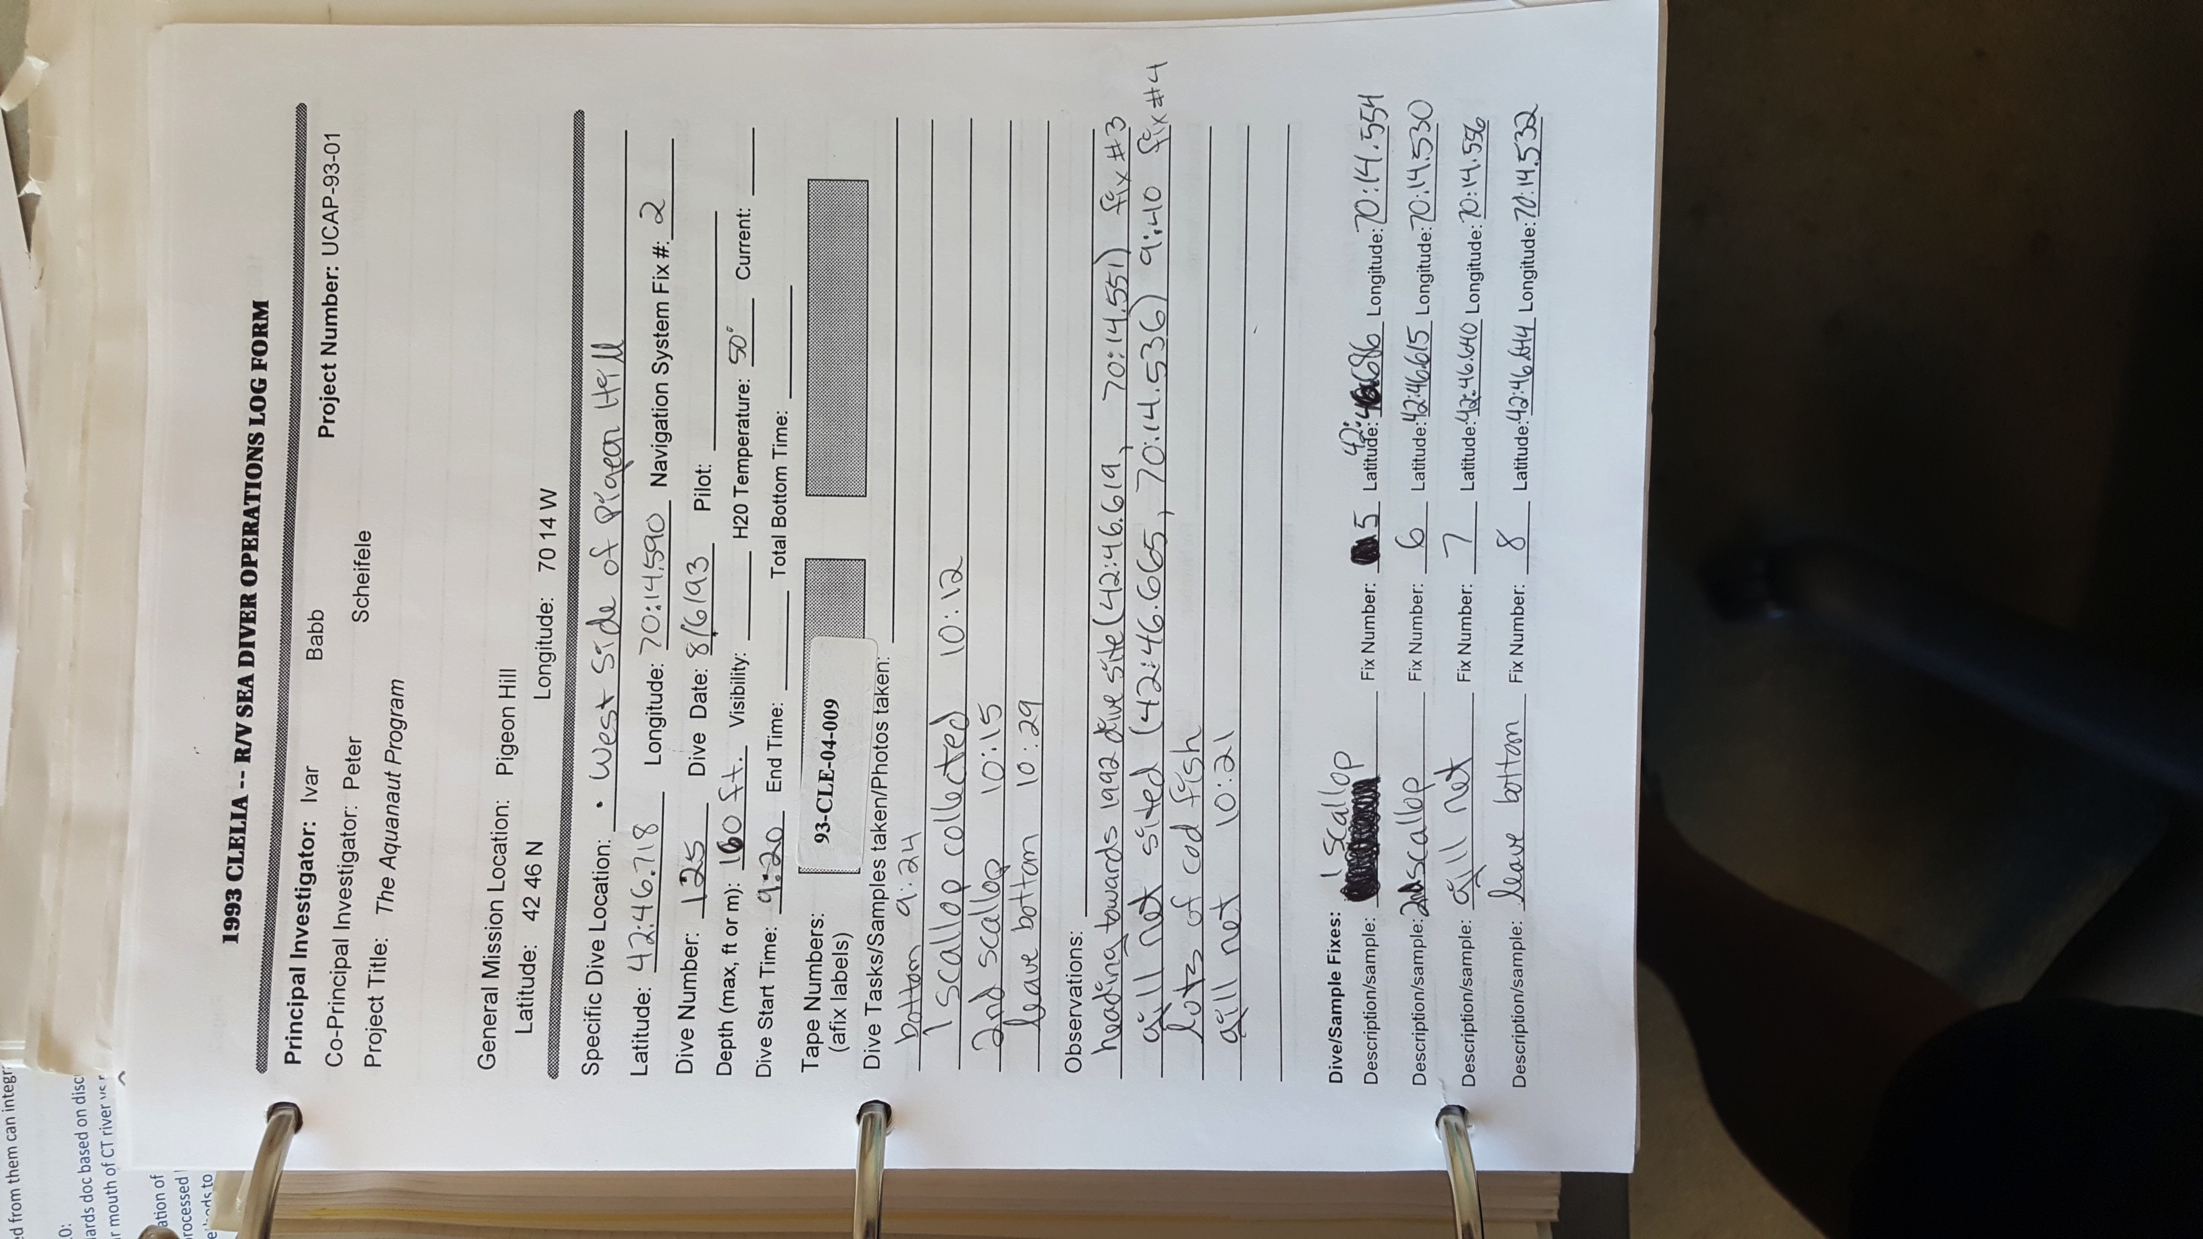 1993 CLELIA -- R/V SEA DIVER OPERATIONS LOG FORM
Principal Investigator: Ivar Babb Project Number: UCAP-93-01
Co-Principal Investigator: Peter Scheifele
Project Title: The Aquanaut Program
General Mission Location: Pigeon Hill
Latitude: 42 46 N Longitude: 70 14 W
Specific Dive Location: • West Side of Pigeon Hill
Latitude: 42:46.718 Longitude: 70:14.590 Navigation System Fix #: 2
Dive Number: 125 Dive Date: 8/6/93 Pilot:
Depth (max, ft or m): 160 ft. Visibility: H20 Temperature: 50° Current:
Dive Start Time: 9:20 End Time: Total Bottom Time:
Tape Numbers: 93-CLE-04-009
(afix labels)
Dive Tasks/Samples taken/Photos taken:
bottom 9:24
1 scallop collected 10:12
2nd scallop 10:15
leave bottom 10:29
Observations:
heading towards 1992 dive site (42:46.619, 70:14.551) fix #3
gill net sited (42:46.665, 70:14.536) 9:40 fix #4
lots of cod fish
gill net 10:21
Dive/Sample Fixes:
Description/sample: 1 scallop Fix Number: 5 Latitude: 42:46.686 Longitude: 70:14.554
Description/sample: 2nd scallop Fix Number: 6 Latitude: 42:46.615 Longitude: 70:14.530
Description/sample: gill net Fix Number: 7 Latitude: 42:46.640 Longitude: 70:14.556
Description/sample: leave bottom Fix Number: 8 Latitude: 42:46.644 Longitude: 70:14.532
ed from them can integr
ards doc based on disc
r mouth of CT river
ation of
rocessed